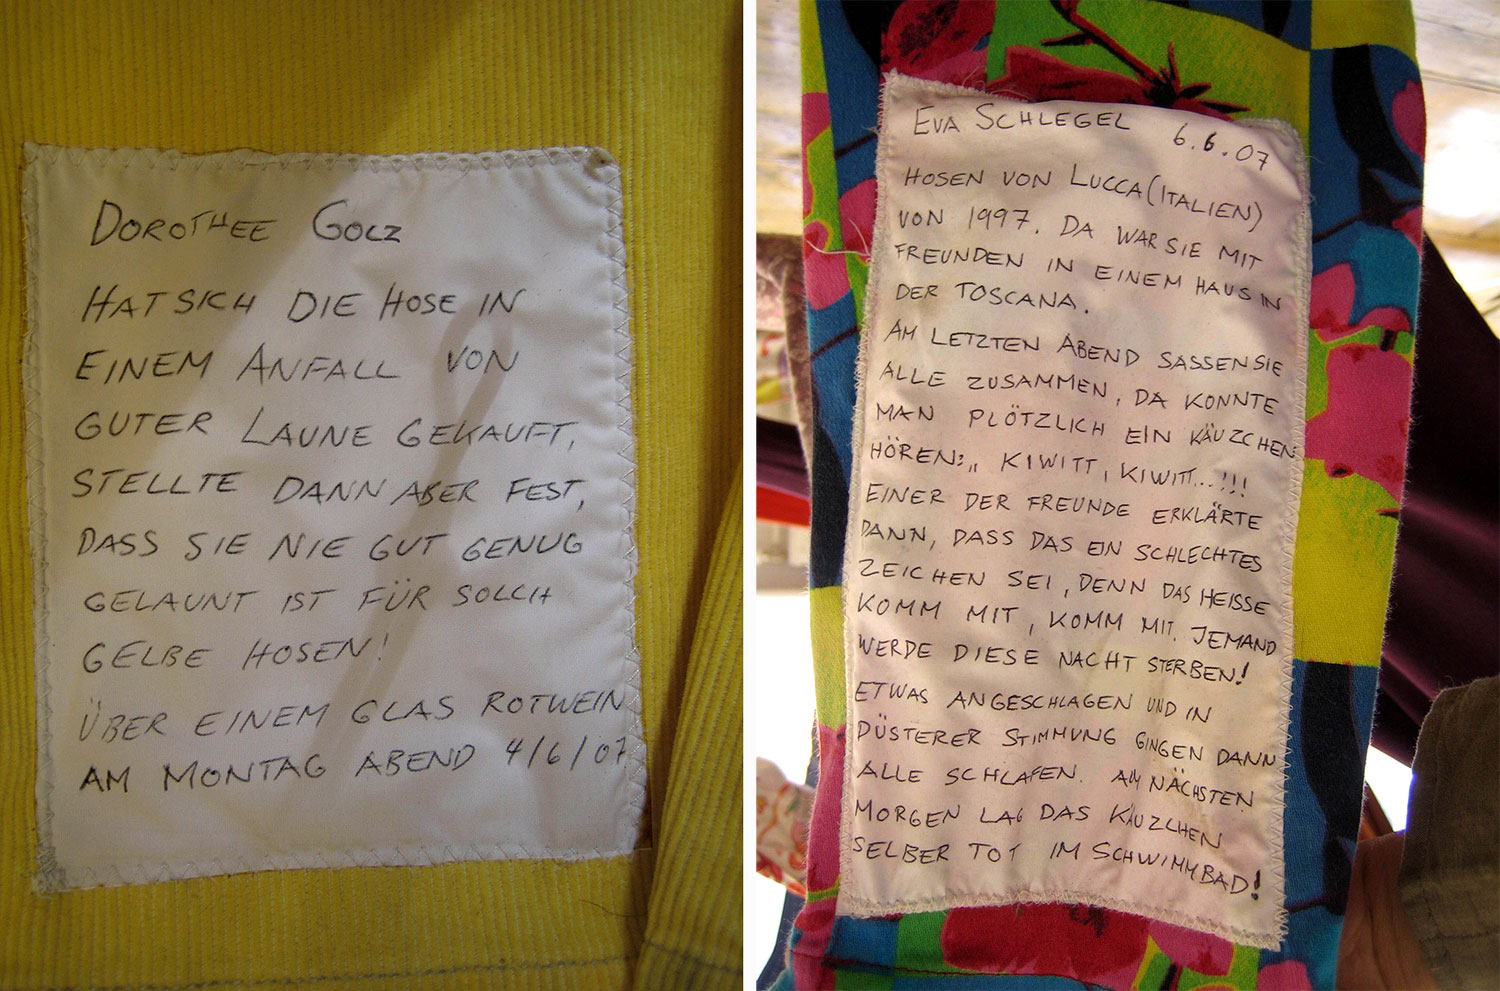 DOROTHEE GOLZ
HAT SICH DIE HOSE IN
EINEM ANFALL VON
GUTER LAUNE GEKAUFT,
STELLTE DANN ABER FEST,
DASS SIE NIE GUT GENUG
GELAUNT IST FÜR SOLCH
GELBE HOSEN!
ÜBER EINEM GLAS ROTWEIN
AM MONTAG ABEND 4/6/07
EVA SCHLEGEL 6.6.07
HOSEN VON LUCCA (ITALIEN)
VON 1997. DA WAR SIE MIT
FREUNDEN IN EINEM HAUS IN
DER TOSCANA.
AM LETZTEN ABEND SASSEN SIE
ALLE ZUSAMMEN, DA KONNTE
MAN PLÖTZLICH EIN KÄUZCHEN
HÖREN: „ KIWITT, KIWITT...!!!
EINER DER FREUNDE ERKLÄRTE
DANN, DASS DAS EIN SCHLECHTES
ZEICHEN SEI, DENN DAS HEISSE
KOMM MIT, KOMM MIT. JEMAND
WERDE DIESE NACHT STERBEN!
ETWAS ANGESCHLAGEN UND IN
DÜSTERER STIMMUNG GINGEN DANN
ALLE SCHLAFEN. AM NÄCHSTEN
MORGEN LAG DAS KÄUZCHEN
SELBER TOT IM SCHWIMMBAD!